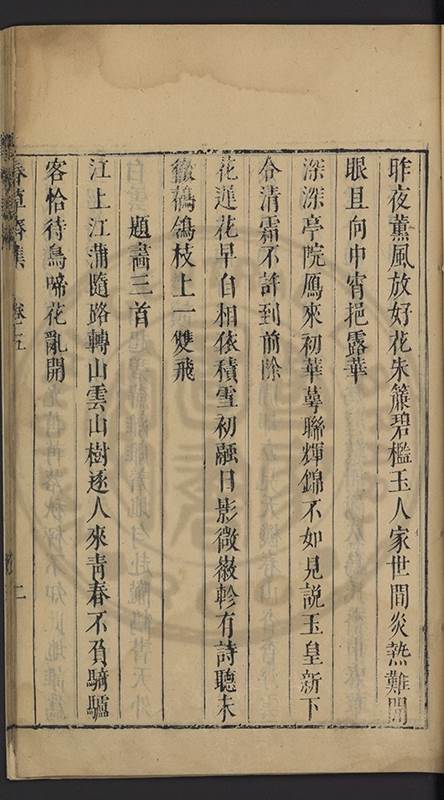 昨夜薰風放好花朱簾碧檻玉人家世間炎熱難開
眼且向中宵挹露華
深深亭院鴈來初華萼聯輝錦不如見說玉皇新下
令清霜不許到前除
花蓮花早白相依積雪初融日影微徽軫有詩聽未
徹鶺鴒枝上一雙飛
題畵三首
江上江蒲隨路轉山雲山樹逐人來靑春不負騎驢
客恰待鳥啼花亂開
春草齋集
卷之五
二